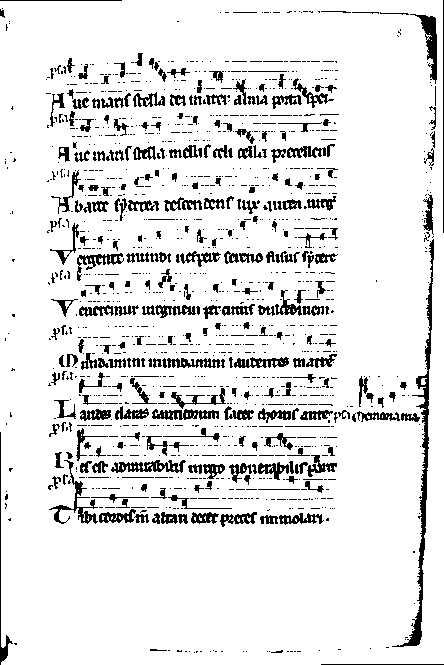 psa
Aue maris stella dei mater alma porta spei
psa
Aue maris stella mellis celi cella precellens
psa
A parte syderea descendens lux aurea uirg
psa
Vergente mundi uespere sereno fusus sydere
psa
Veneremur uirginem per cuius dulcedinem.
psa
Mundanum mundanum laudentes matre
psa
Laudes claras canticorum sacer chorus ante psa
psa
Res est admirabilis uirgo uenerabilis
psa
Tibi cordis in altari decet preces immolari.